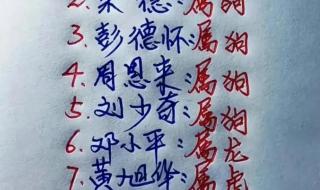 2.朱德:属狗
3.彭德怀:属狗
4.周恩来:属狗
5.刘少奇:属狗
6.邓小平:属龙
7.黄旭华:属虎